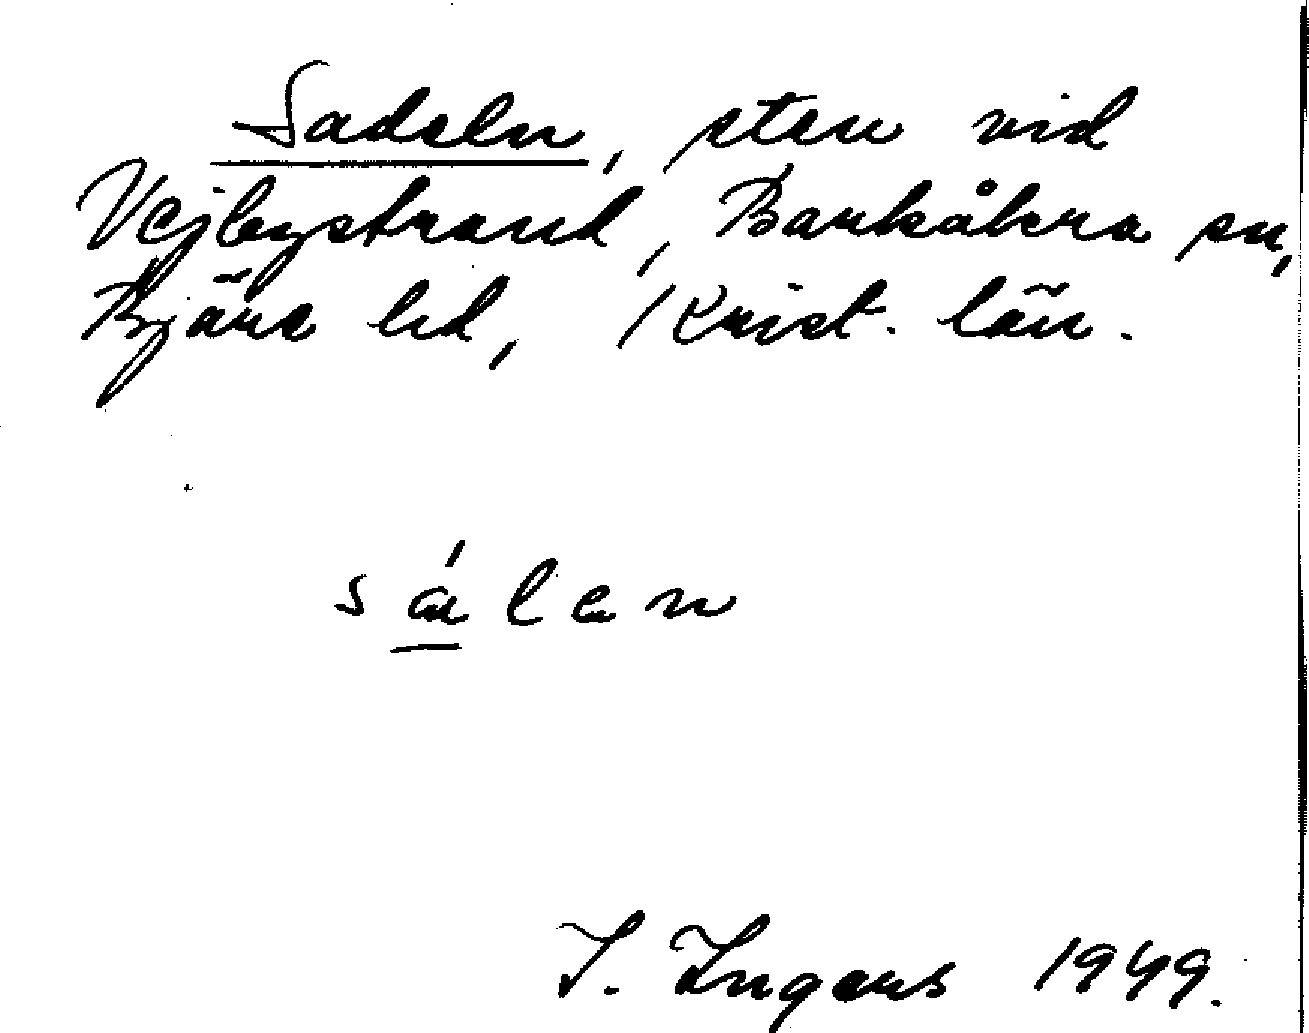 Sadeln, sten vid
Vejbystrand, Barkåkra sn,
Bjäre hd, Krist. län.
sálen
I. Ingers 1949.